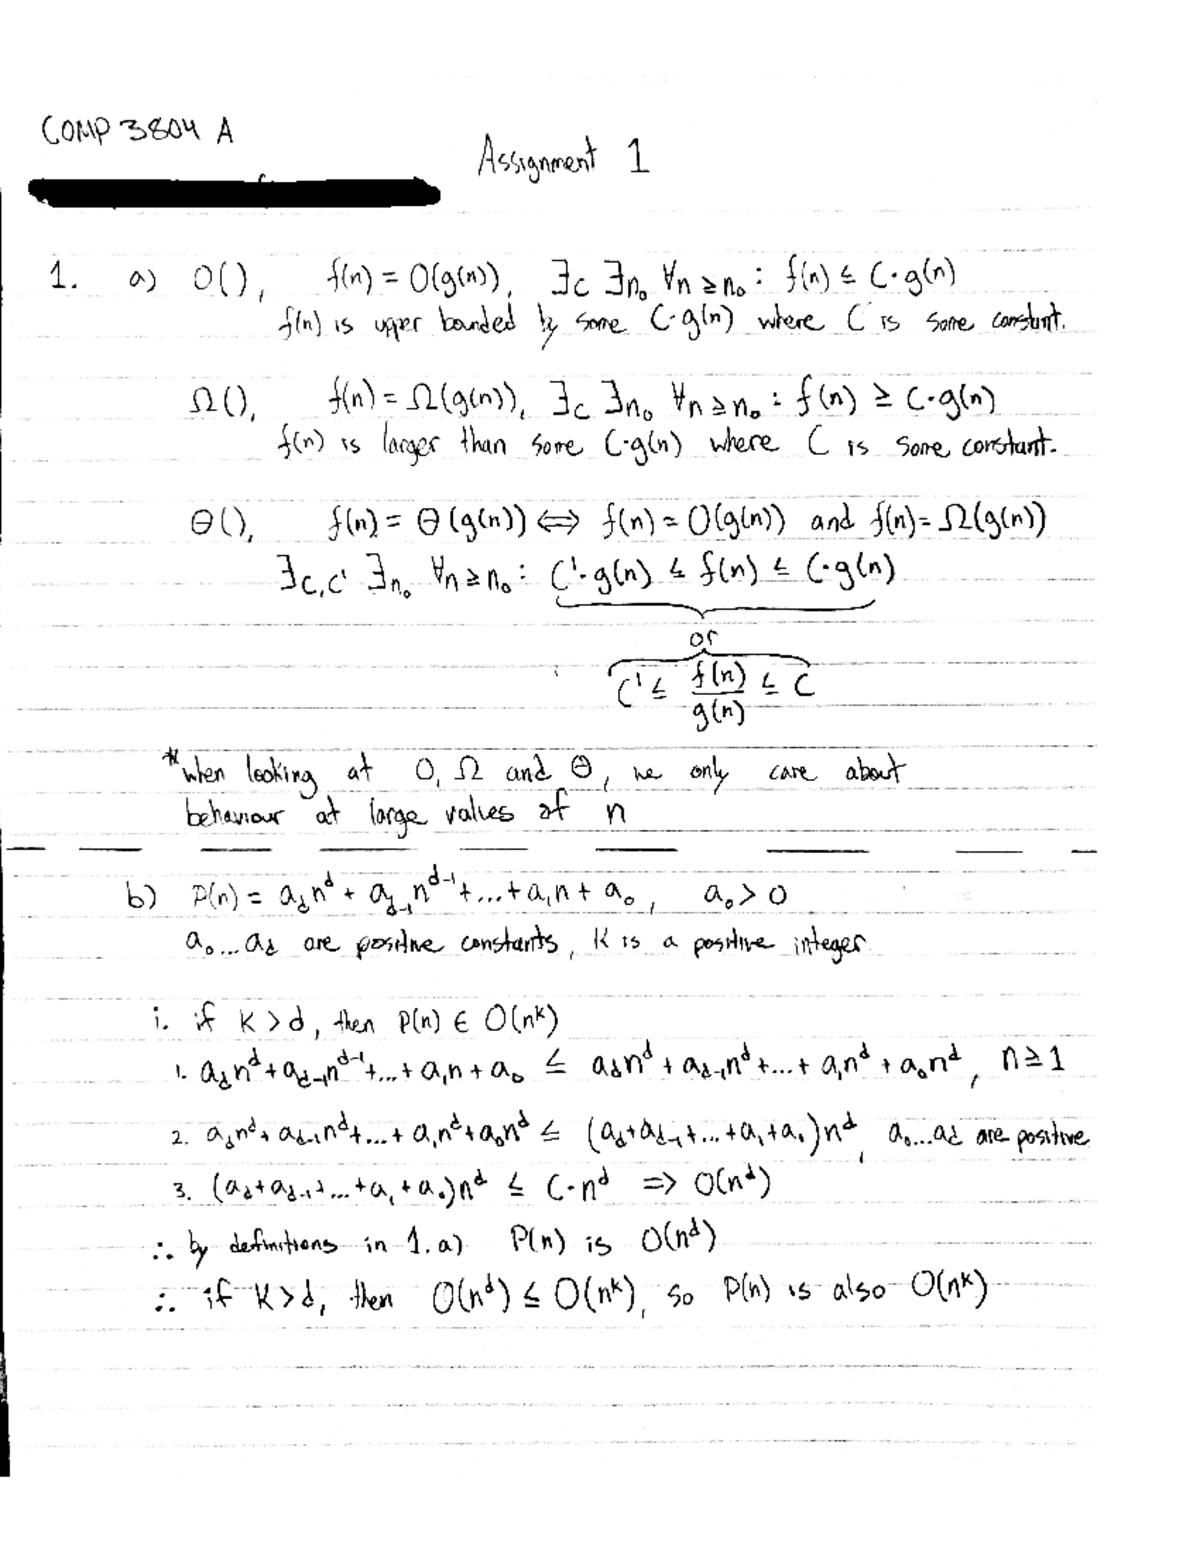 COMP 3804 A
Assignment 1
1. a) O(), f(n) = O(g(n)), ∃c ∃n₀ ∀n ≥ n₀ : f(n) ≤ C·g(n)
f(n) is upper bounded by some C·g(n) where C is some constant.
Ω(), f(n) = Ω(g(n)), ∃c ∃n₀ ∀n ≥ n₀ : f(n) ≥ C·g(n)
f(n) is larger than some C·g(n) where C is some constant.
Θ(), f(n) = Θ(g(n)) ⟺ f(n) = O(g(n)) and f(n) = Ω(g(n))
∃c,c' ∃n₀ ∀n ≥ n₀ : C'·g(n) ≤ f(n) ≤ C·g(n)
or
C' ≤ f(n)/g(n) ≤ C
*when looking at O, Ω and Θ, we only care about
behaviour at large values of n
b) P(n) = a_d n^d + a_{d-1} n^{d-1} + ... + a₁n + a₀, a₀ > 0
a₀...a_d are positive constants, K is a positive integer
i. if K > d, then P(n) ∈ O(n^K)
1. a_d n^d + a_{d-1} n^{d-1} + ... + a₁n + a₀ ≤ a_d n^d + a_{d-1} n^d + ... + a₁n^d + a₀n^d, n ≥ 1
2. a_d n^d + a_{d-1} n^d + ... + a₁n^d + a₀n^d ≤ (a_d + a_{d-1} + ... + a₁ + a₀)n^d, a₀...a_d are positive
3. (a_d + a_{d-1} + ... + a₁ + a₀)n^d ≤ C·n^d => O(n^d)
∴ by definitions in 1.a) P(n) is O(n^d)
∴ if K > d, then O(n^d) ≤ O(n^K), so P(n) is also O(n^K)